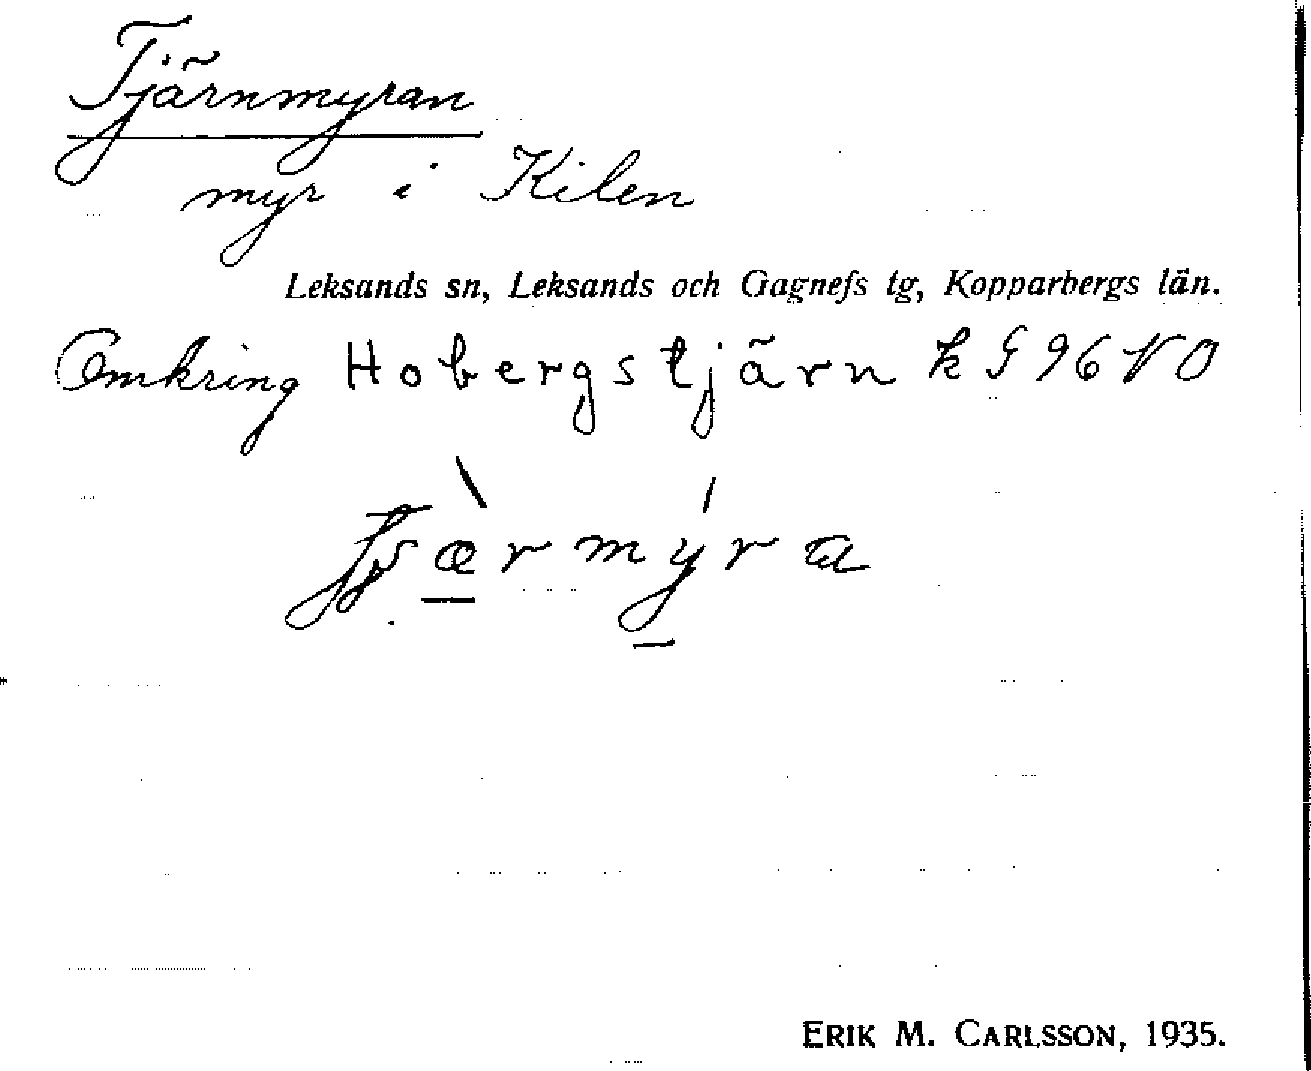 Tjärnmyran
myr i Kilen
Leksands sn, Leksands och Gagnefs tg, Kopparbergs län.
Omkring Hobergstjärn k G 96 N O
ærmyra
ERIK M. CARLSSON, 1935.